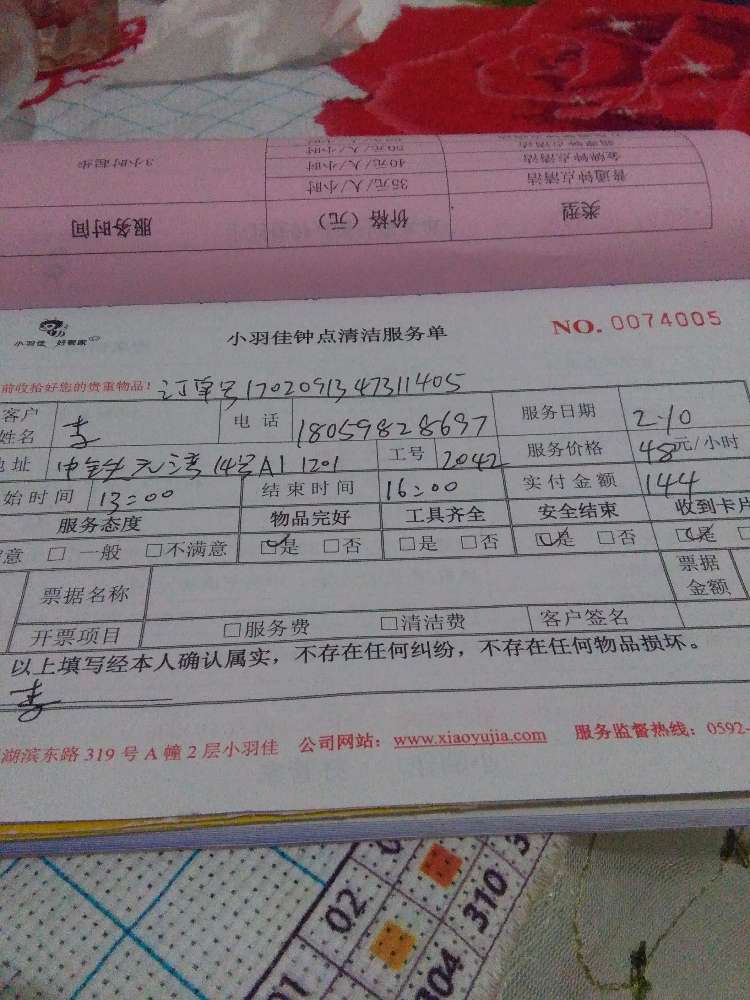 50元/人/小时
金牌钟点清洁 40元/人/小时 3小时起步
普通钟点清洁 35元/人/小时
类型 价格（元） 服务时间
小羽佳 好管家
小羽佳钟点清洁服务单
NO. 0074005
前收拾好您的贵重物品！ 订单号1702091347311405
客户姓名 李 电话 18059828697 服务日期 2.10
地址 中铁元湾 14号A1 1201 工号 2042 服务价格 48元/小时
始时间 13:00 结束时间 16:00 实付金额 144
服务态度 物品完好 工具齐全 安全结束 收到卡片
意 □ 一般 □不满意 ☑是 □否 □是 □否 ☑是 □否 ☑是 □
票据名称 票据金额
开票项目 □服务费 □清洁费 客户签名
以上填写经本人确认属实，不存在任何纠纷，不存在任何物品损坏。
李
湖滨东路 319 号 A 幢 2 层小羽佳 公司网站：www.xiaoyujia.com 服务监督热线：0592-
02
310
304